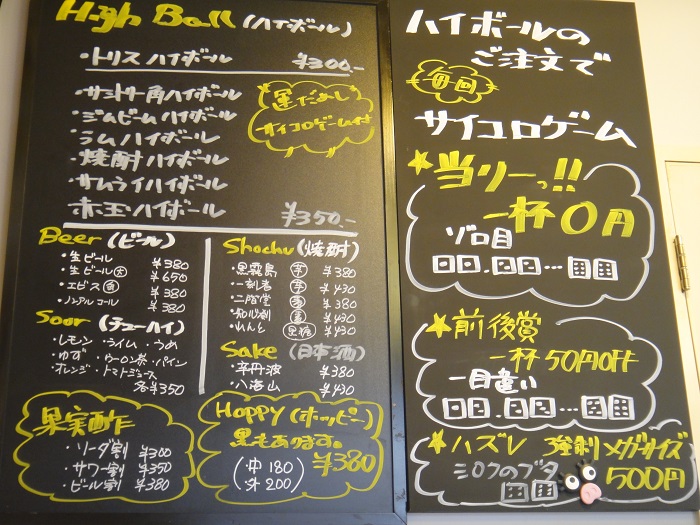 High Ball (ハイボール)
・トリスハイボール ¥300.-
・サントリー角ハイボール
・ジムビームハイボール
・ラムハイボール
・焼酎ハイボール
・サムライハイボール
・赤玉ハイボール ¥350.-
運だめし
サイコロゲーム付
Beer (ビール)
・生ビール ¥380
・生ビール 大 ¥650
・エビス ¥380
・ノンアルコール ¥380
Soor (チューハイ)
・レモン ・ライム ・うめ
・ゆず ・ウーロン茶 ・パイン
・オレンジ ・トマトジュース
各¥350
Shochu (焼酎)
・黒霧島 芋 ¥380
・一刻者 芋 ¥430
・二階堂 麦 ¥380
・知心剣 麦 ¥430
・れんと 黒糖 ¥430
Sake (日本酒)
・辛丹波 ¥380
・八海山 ¥430
果実酢
・ソーダ割 ¥300
・サワー割 ¥350
・ビール割 ¥380
Hoppy (ホッピー)
黒もあります。
¥380
(中 180
外 200)
ハイボールの
ご注文で
毎回
サイコロゲーム
★当りーっ!!
一杯0円
ゾロ目
★前後賞
一杯50円OFF
一目違い
★ハズレ 強制メガサイズ
ミロクのブタ 500円